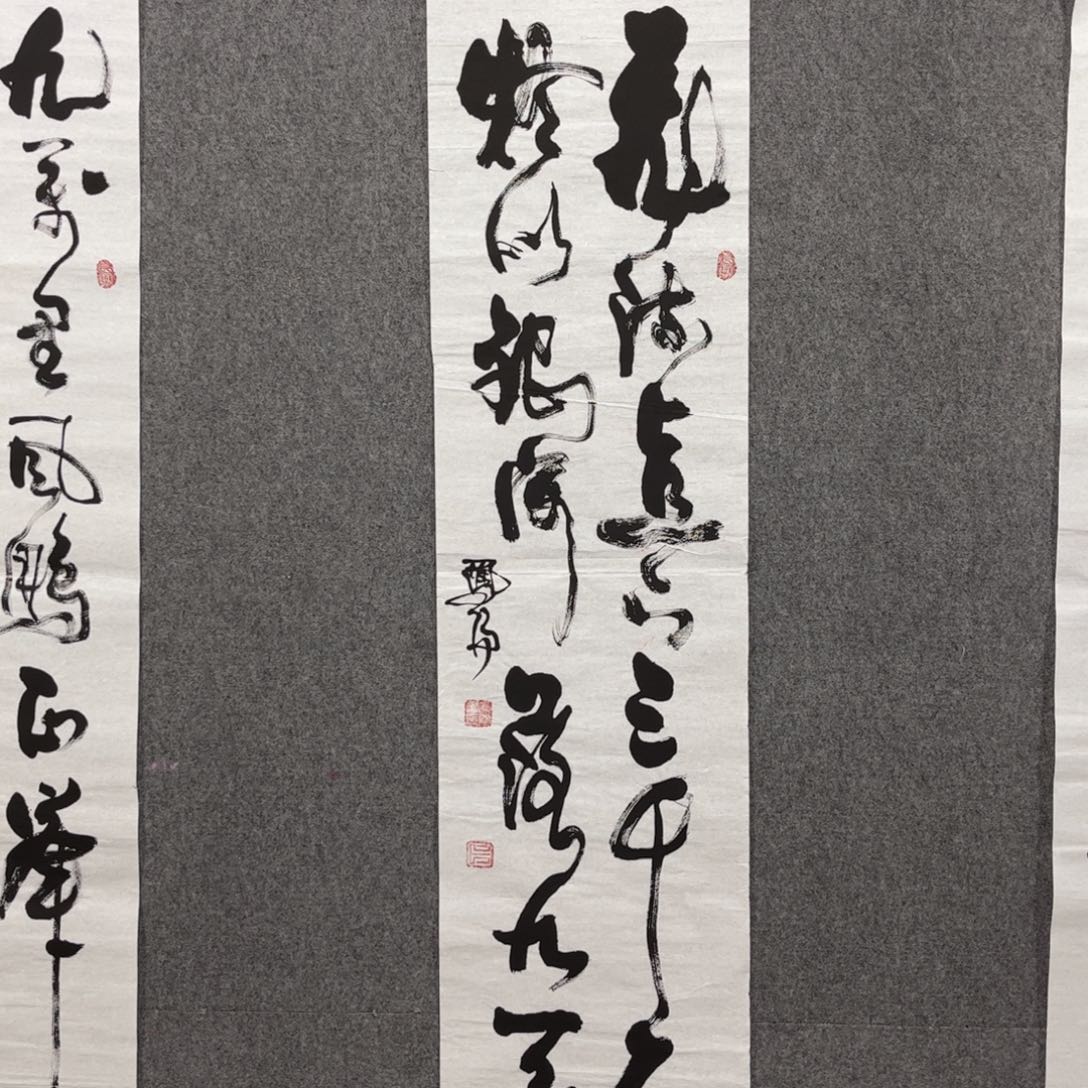 飛流直下三千尺
疑似銀河落九天
九萬里風鵬正舉